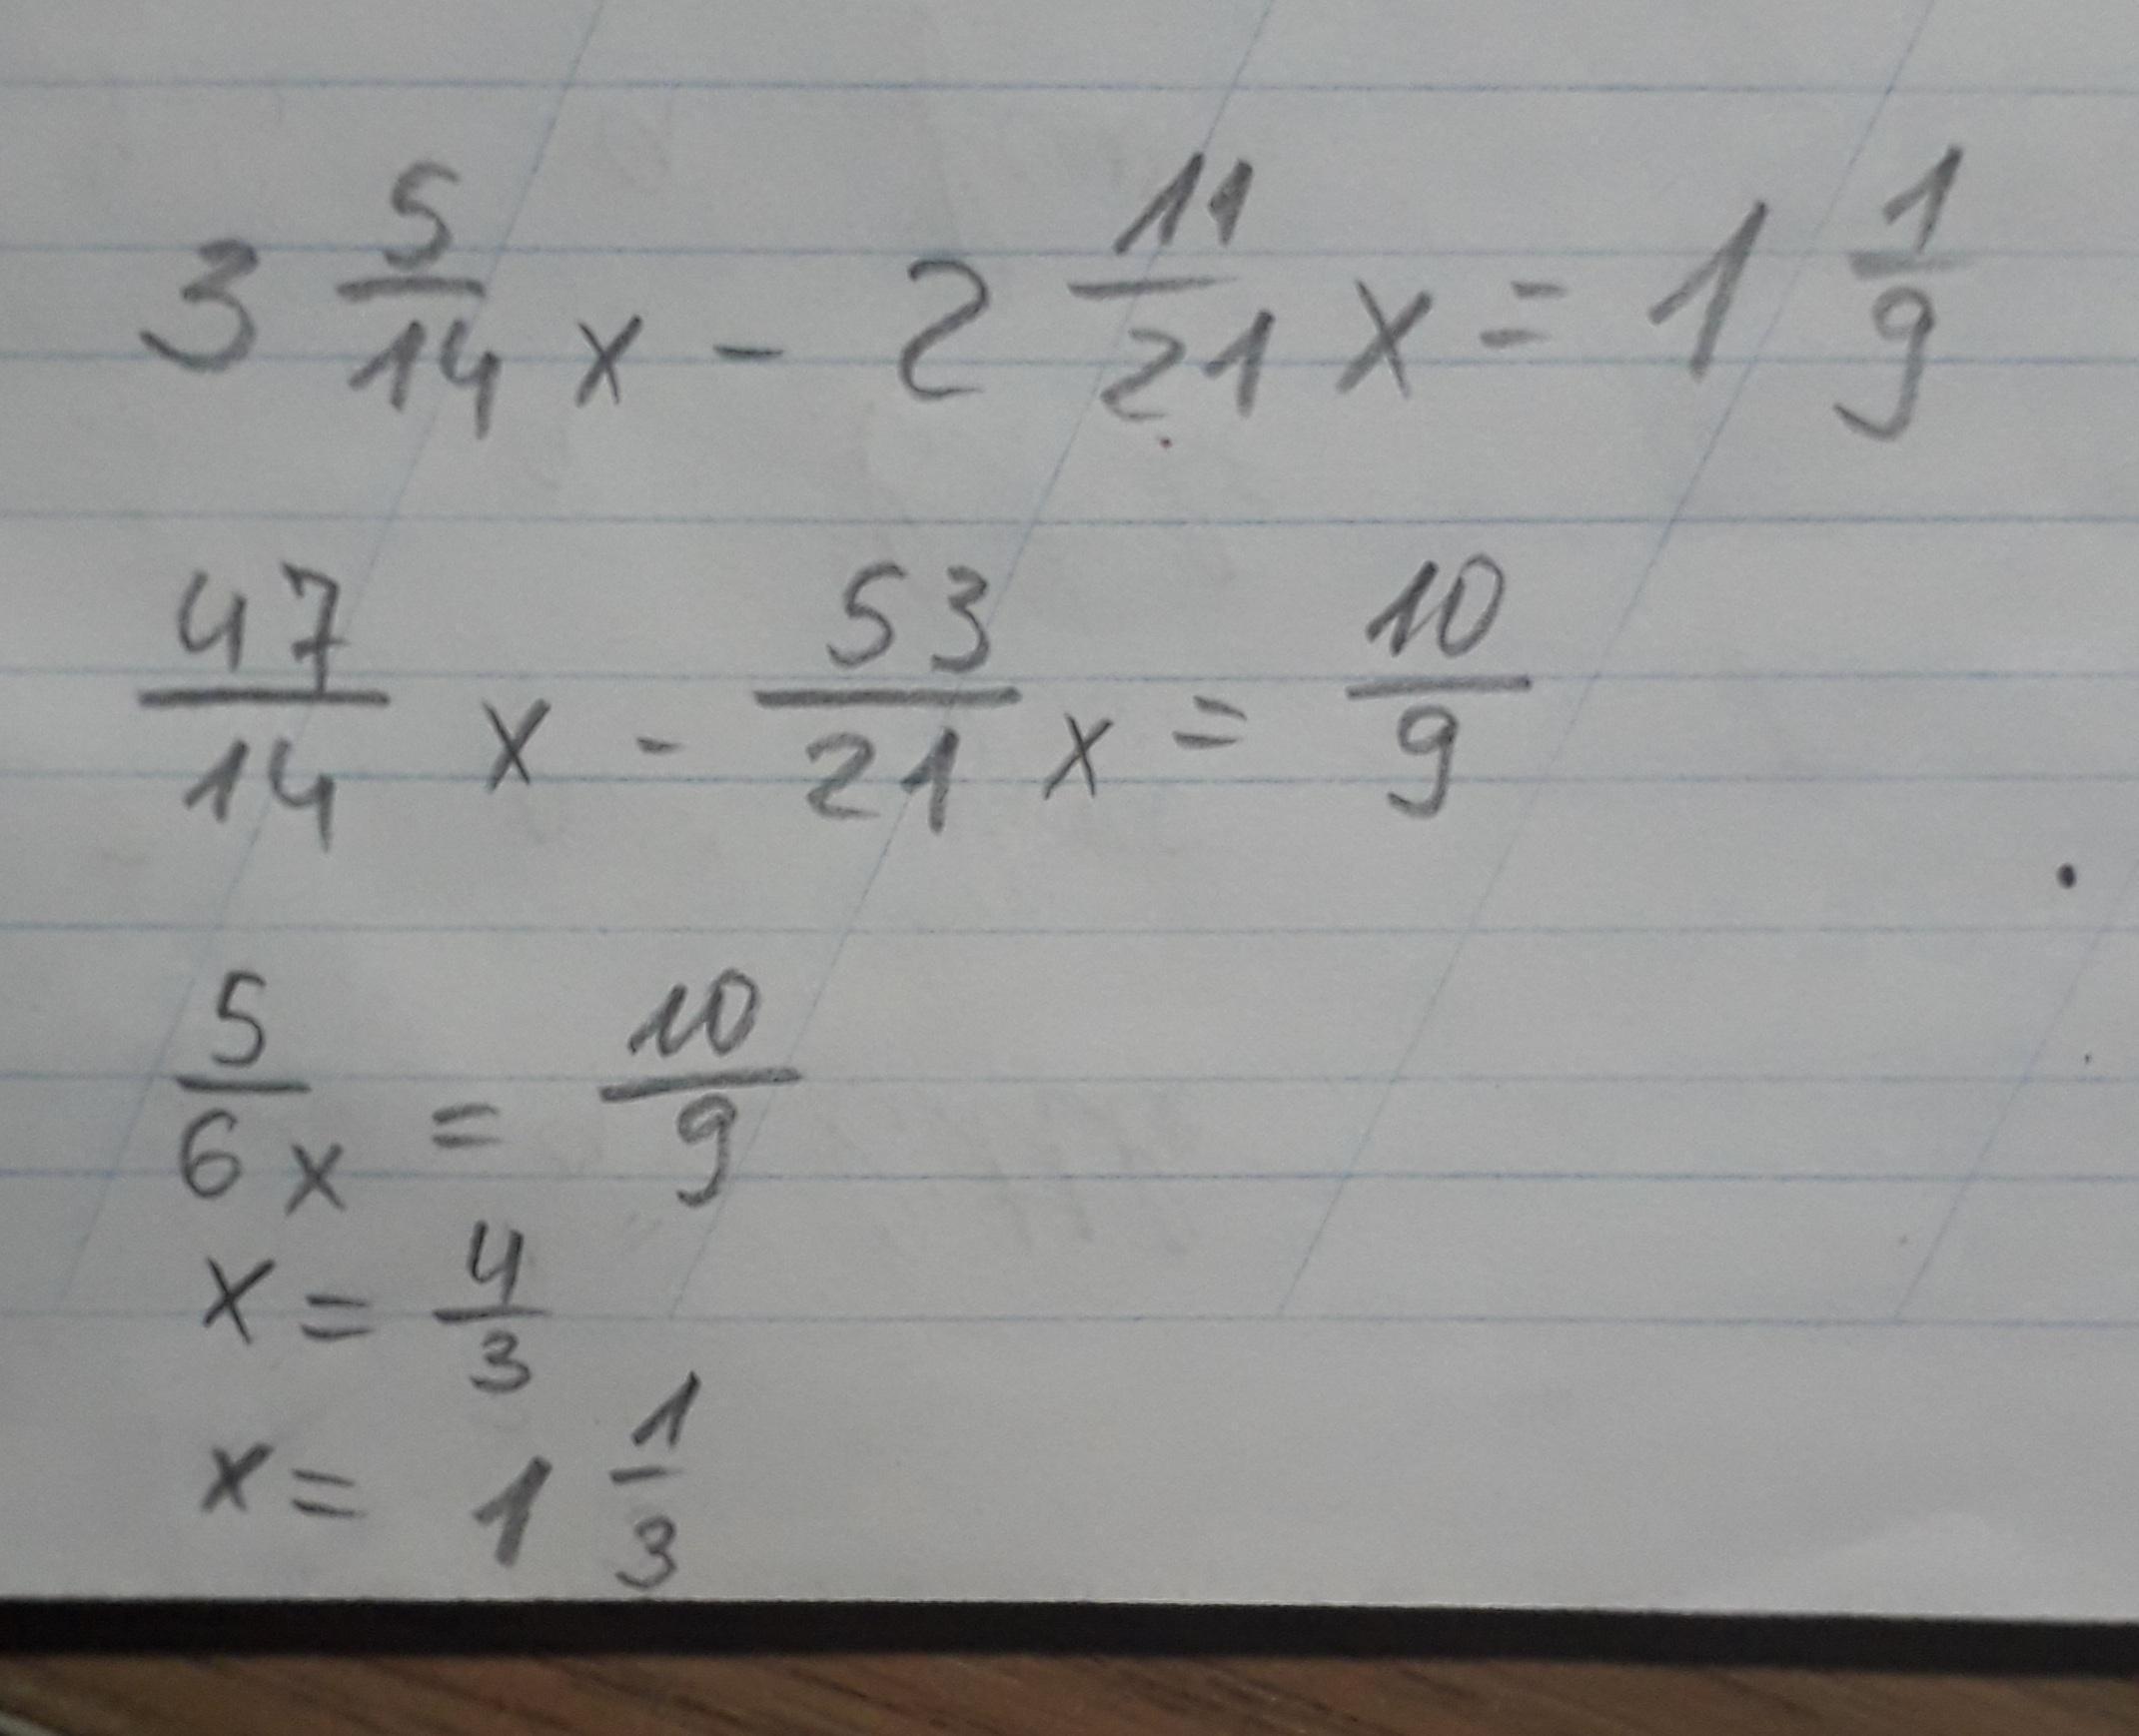 3 5/14 x - 2 11/21 x = 1 1/9
47/14 x - 53/21 x = 10/9
5/6 x = 10/9
x = 4/3
x = 1 1/3